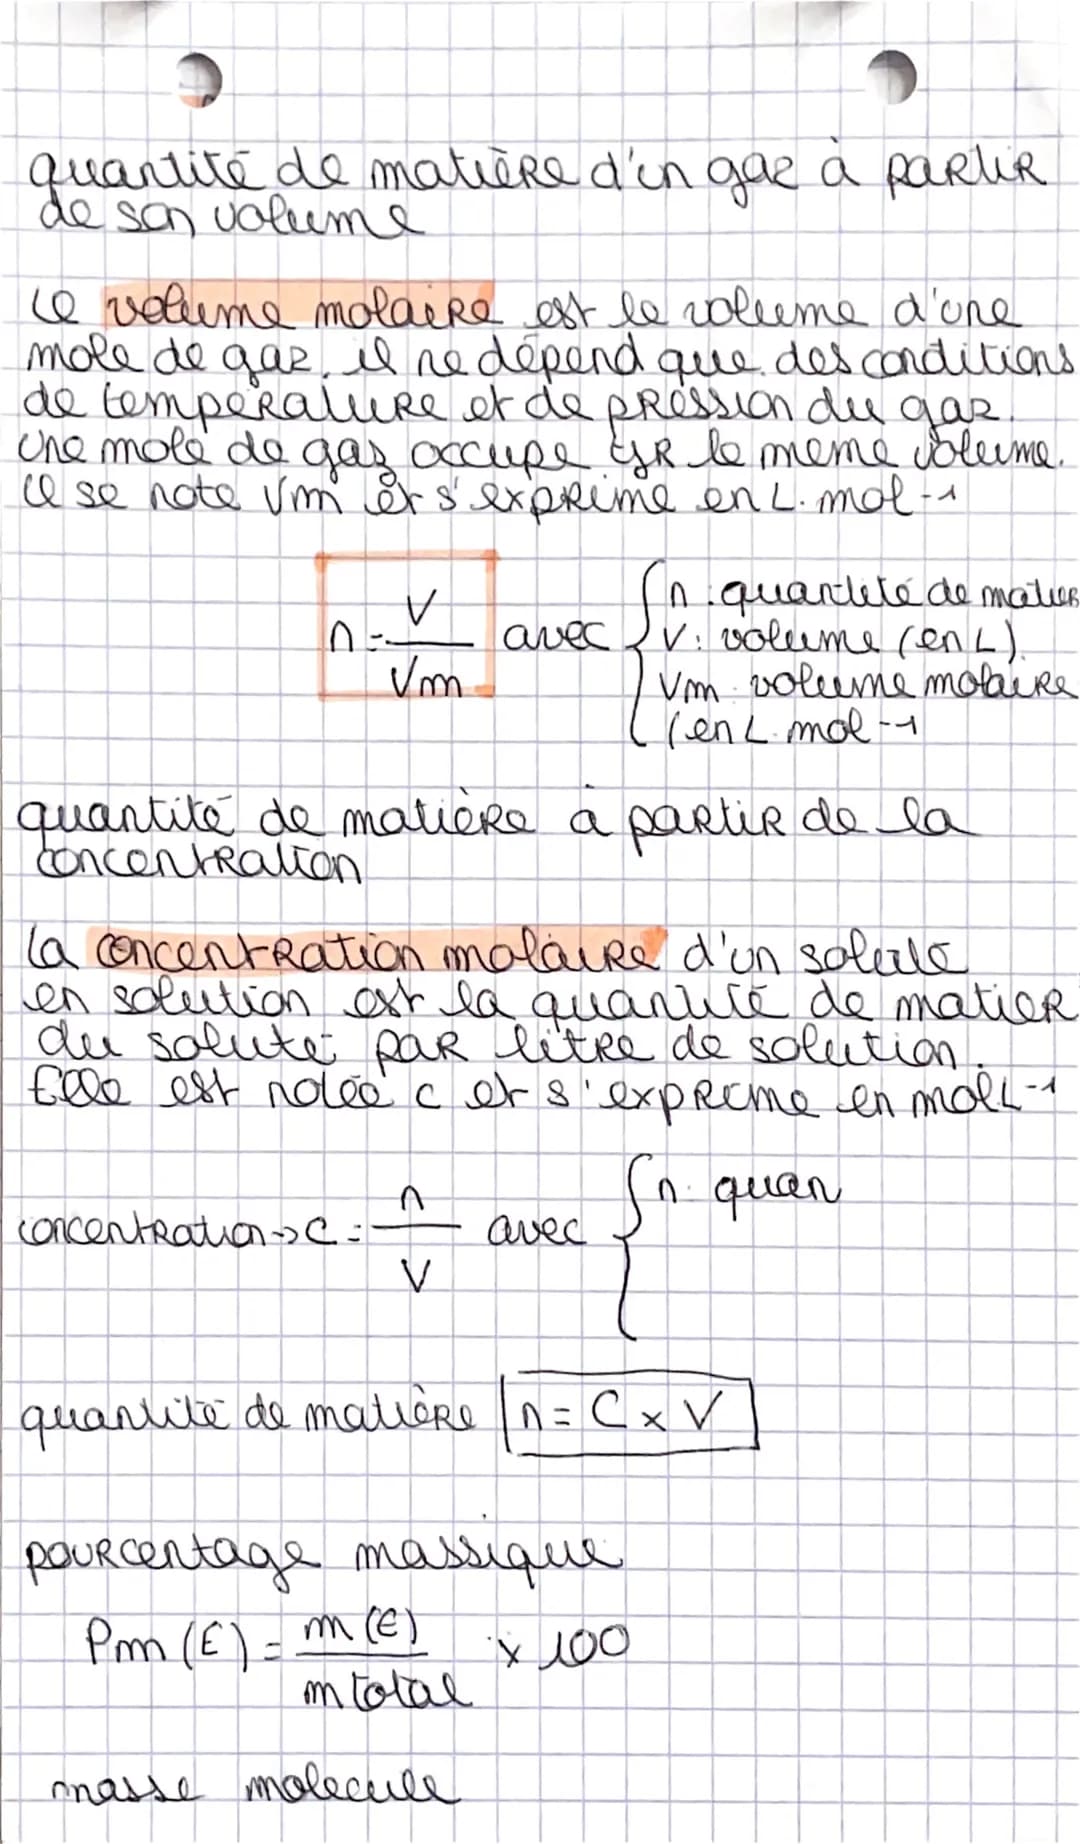 quantité de matière d'un gaz à partir
de son volume
Le volume molaire est le volume d'une
mole de gaz. il ne dépend que des conditions
de température et de pression du gaz.
Une mole de gaz occupe tjr le meme volume.
il se note Vm et s'exprime en L.mol-1
n = V / Vm avec { n : quantité de matier
V : volume (en L)
Vm : volume molaire
(en L.mol-1
quantité de matière à partir de la
concentration
La concentration molaire d'un soluté
en solution est la quantité de matier
du soluté par litre de solution.
Elle est notée c et s'exprime en molL-1
concentration -> C = n / V avec { n : quan
quantité de matière n = C x V
pourcentage massique
Pm (E) = m (E) / m total x 100
masse molecule